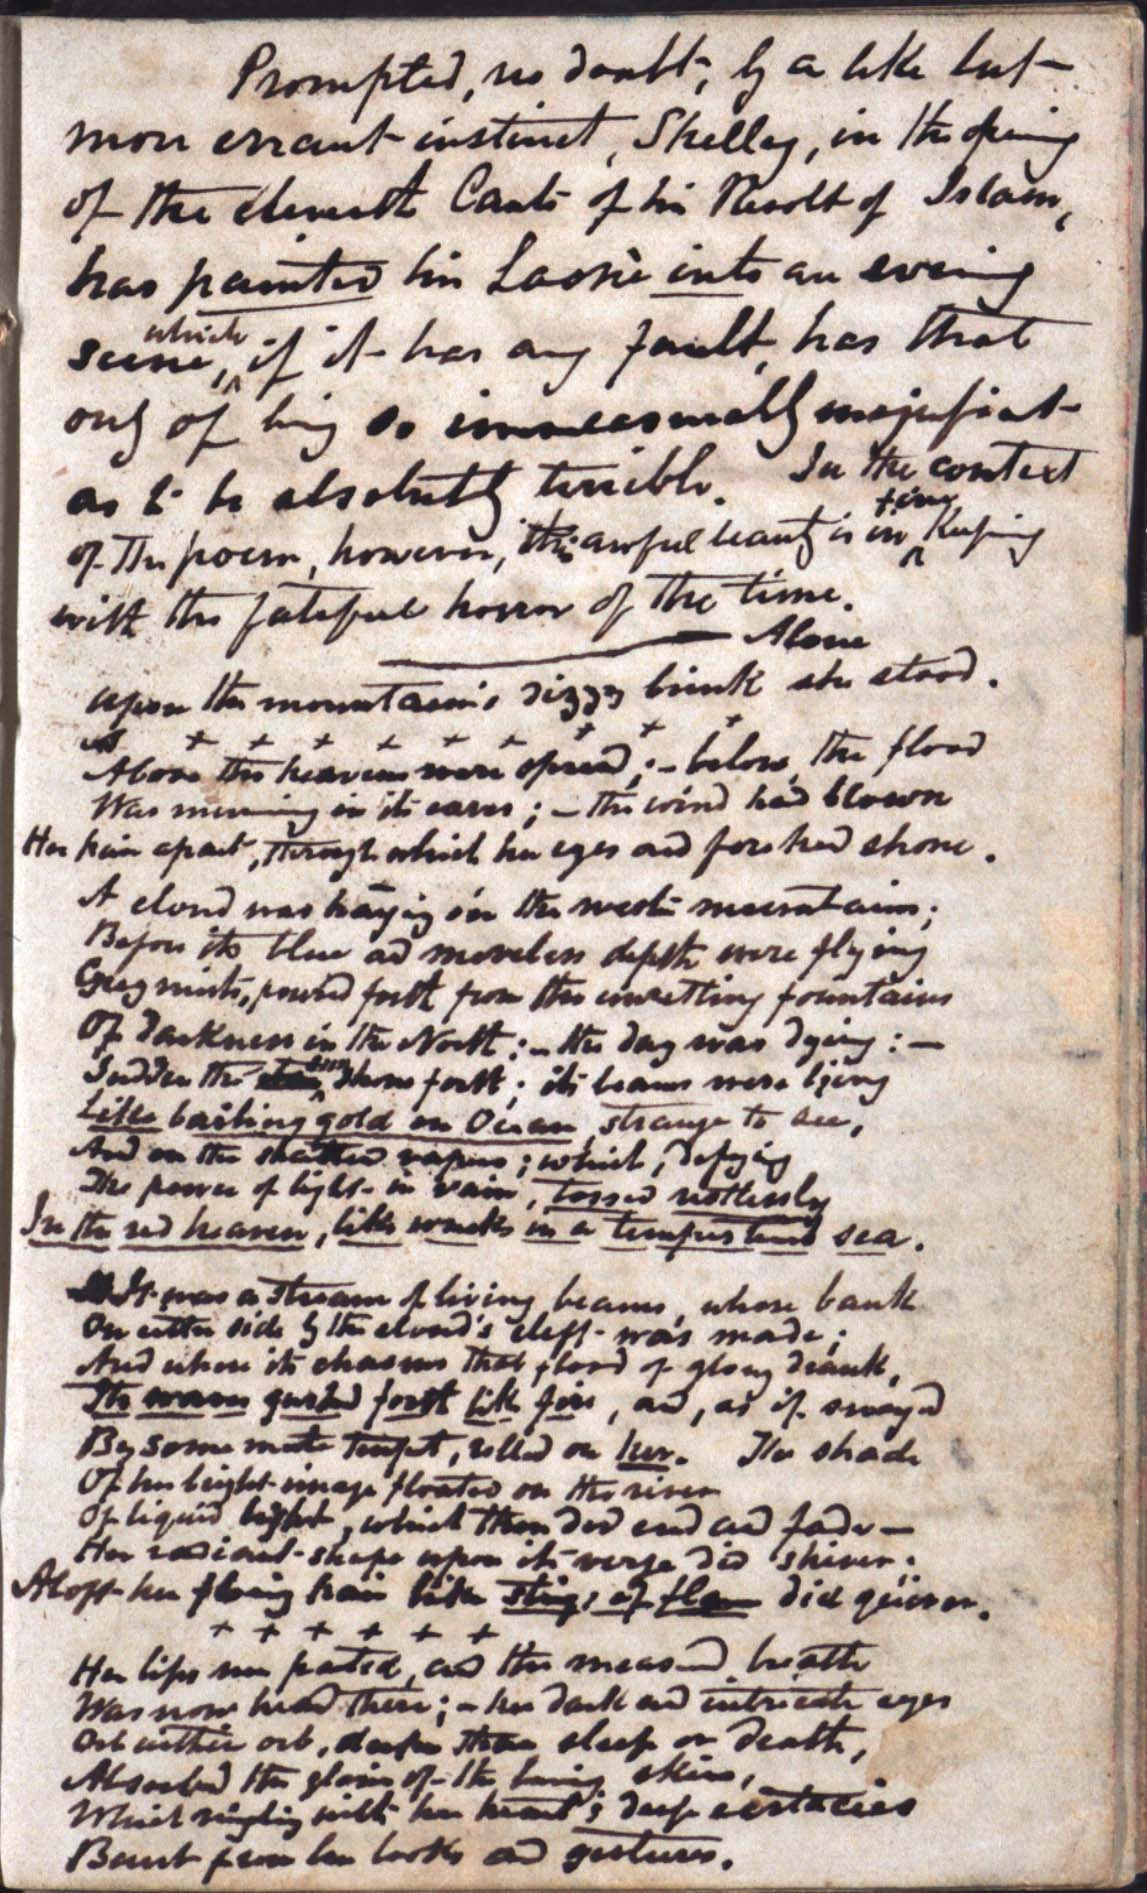 Prompted, no doubt, by a like but
more errant instinct, Shelley, in the opening
of the eleventh Canto of his Revolt of Islam,
has painted his Laone into an evening
scene, which if it has any fault, has that
only of being so immeasurably magnificent
as to be absolutely terrible. In the context
of the poem, however, this awful beauty is in fine keeping
with the fateful horror of the time.
Alone
upon the mountain's dizzy brink she stood.
+ + + + + + + + +
Above the heavens were spread; – below, the flood
Was murmuring in its caves; – the wind had blown
Her hair apart, through which her eyes and forehead shone.
A cloud was hanging o'er the western mountains;
Before its blue and moveless depth were flying
Grey mists, poured forth from the unresting fountains
Of darkness in the North: – the day was dying: –
Sudden the sun shone forth; its beams were lying
Like boiling gold on Ocean, strange to see,
And on the shattered vapours; which, defying
The power of light in vain, tossed restlessly
In the red heaven, like wrecks in a tempestuous sea.
It was a stream of living beams, whose bank
On either side by the cloud's cleft was made;
And where its chasms that flood of glory drank,
Its waves gushed forth like fire, and, as if swayed
By some mute tempest, rolled on her. The shade
Of her bright image floated on the river
Of liquid light, which then did end and fade –
Her radiant shape upon its verge did shiver;
Aloft her flowing hair like strings of flame did quiver.
+ + + + + +
Her lips were parted, and the measured breath
Was now heard there; – her dark and intricate eyes
Orb within orb, deeper than sleep or death,
Absorbed the glories of the burning skies,
Which mingling with her heart's deep ecstacies
Burst from her looks and gestures.